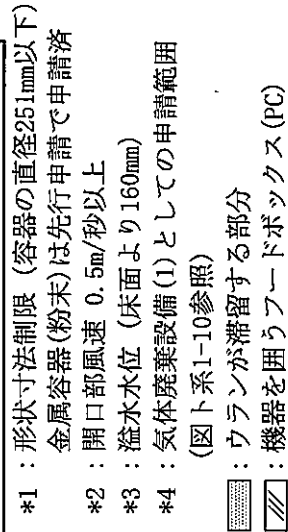 *1 : 形状寸法制限 (容器の直径251mm以下)
金属容器(粉末)は先行申請で申請済
*2 : 開口部風速 0.5m/秒以上
*3 : 溢水水位 (床面より160mm)
*4 : 気体廃棄設備(1)としての申請範囲
(図ト系1-10参照)
: ウランが滞留する部分
: 機器を囲うフードボックス(PC)